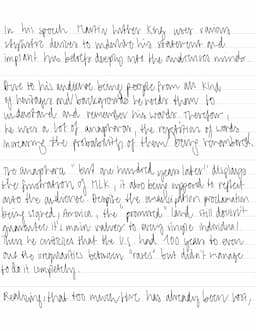 In his speech Martin Luther King uses various
stylistic devices to underline his statement and
implant his beliefs deeply into the audiences minds.
Due to his audience being people from all kind
of heritages and backgrounds he needs them to
understand and remember his words. Therefore,
he uses a lot of anaphoras, the repetition of words
increasing the probability of them being remembered.
The anaphora "but one hundred years later" displays
the frustration of MLK, it also being supposed to reflect
onto the audience. Despite the emancipation proclamation
being signed, America, the "promised" land, still doesn't
guarantee it's main values to every single individual.
Thus he criticizes that the U.S. had 100 years to even
out the irregularities between "races" but didn't manage
to do it completely.
Realizing, that too much time has already been lost,